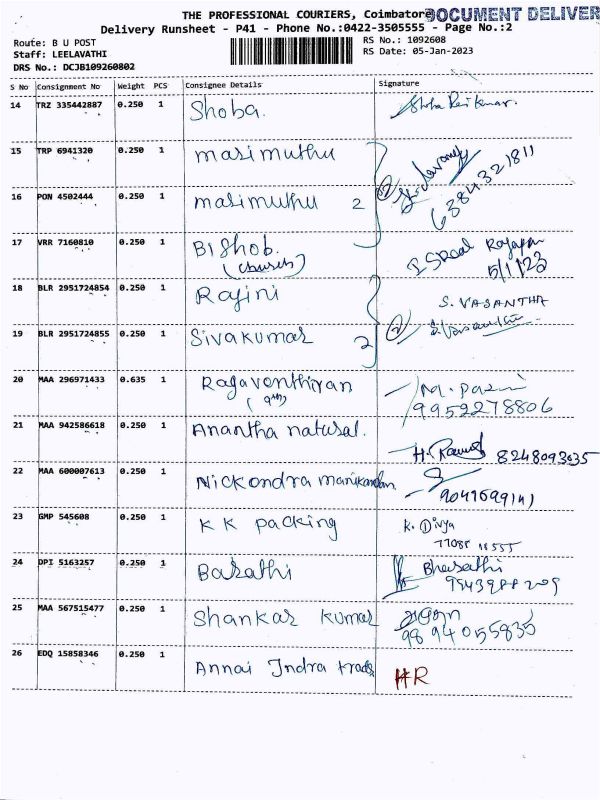 THE PROFESSIONAL COURIERS, Coimbatore
DOCUMENT DELIVER
Delivery Runsheet - P41 - Phone No.:0422-3505555 - Page No.:2
Route: B U POST
RS No.: 1092608
Staff: LEELAVATHI
RS Date: 05-Jan-2023
DRS No.: DCJB109260802
S No Consignment No Weight PCS Consignee Details Signature
14 TRZ 335442887 0.250 1 Shoba.
15 TRP 6941320 0.250 1 masimuthu
6384321811
16 PON 4502444 0.250 1 masimuthu 2
17 VRR 7160810 0.250 1 BIShob.
(church)
5/1/23
18 BLR 2951724854 0.250 1 Rajini S. VASANTHA
19 BLR 2951724855 0.250 1 Sivakumar 2
20 MAA 296971433 0.635 1 Ragaventhiran
9952278806
21 MAA 942586618 0.250 1 Anantha natural.
8248093635
22 MAA 600007613 0.250 1 Nickondra manikandan
23 GMP 545608 0.250 1 KK packing K. Divya
24 DPI 5163257 0.250 1 Barathi Bharathi
25 MAA 567515477 0.250 1 Shankar kumar
9894055835
26 EDQ 15858346 0.250 1 Annai Indra trads HR